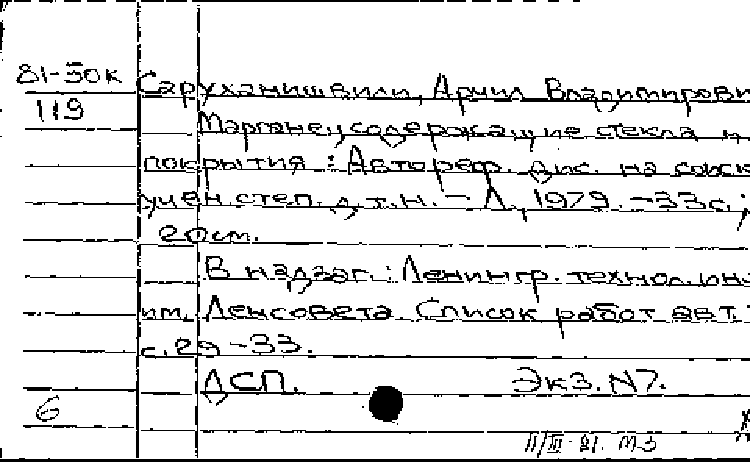 81-50к
119
Саруханишвили, Арчил Владимирови
Марганецсодержащие стекла и
покрытия : Автореф. дис. на соиск
учен. степ. д.т.н. - Л., 1979. - 33с.;
20см.
В надзаг.: Ленингр. технол. ин
им. Ленсовета. Список работ авт.:
с.29-33.
ДСП. Экз. N7.
6